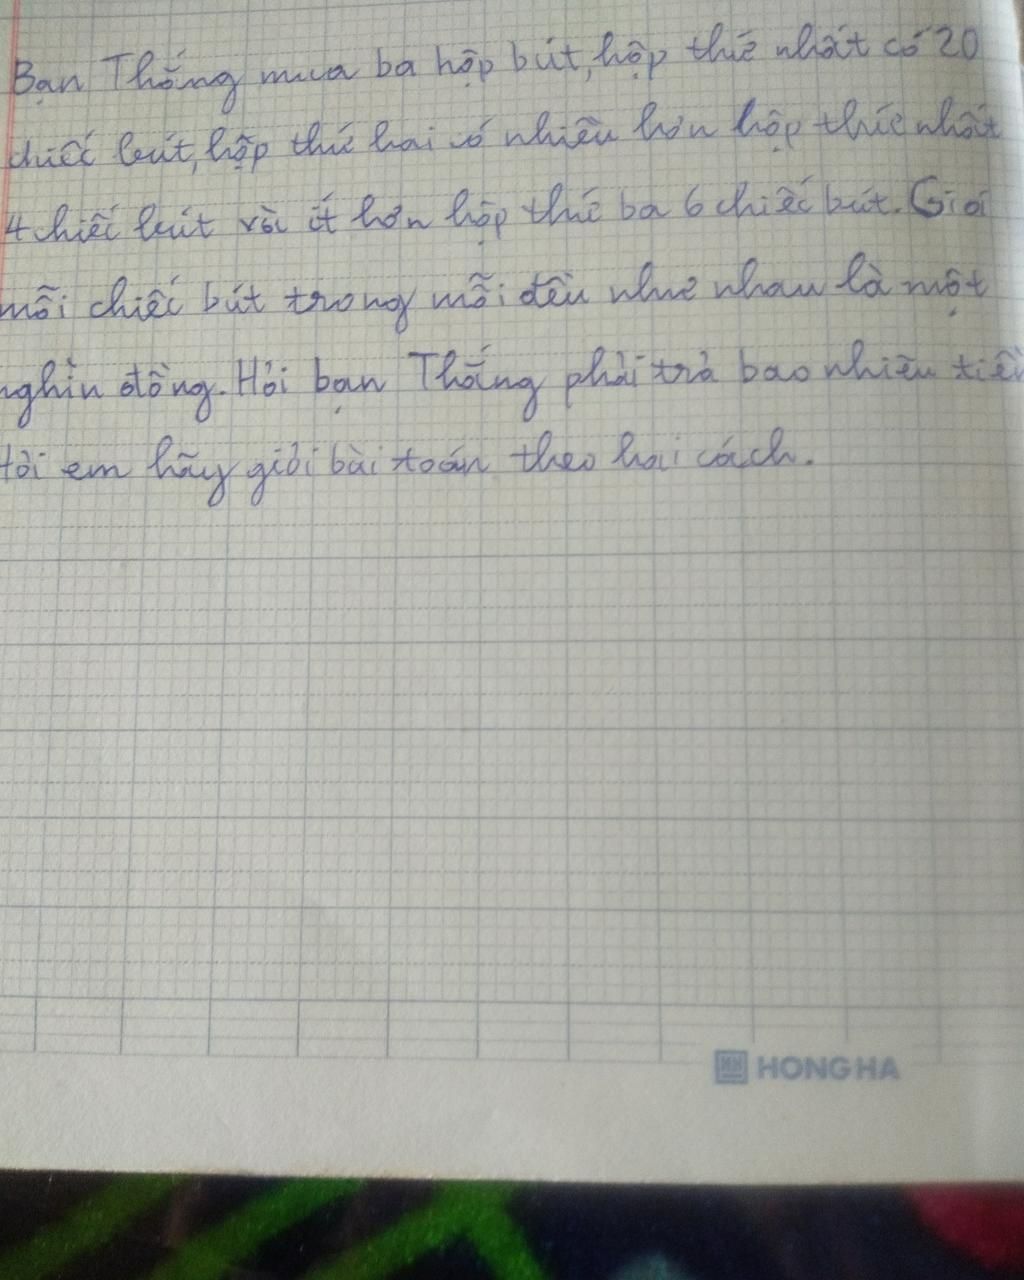 Bạn Thắng mua ba hộp bút, hộp thứ nhất có 20
chiếc bút, hộp thứ hai có nhiều hơn hộp thứ nhất
4 chiếc bút và ít hơn hộp thứ ba 6 chiếc bút. Giá
mỗi chiếc bút trong mỗi đều như nhau là một
nghìn đồng. Hỏi bạn Thắng phải trả bao nhiêu tiền
em hãy giải bài toán theo hai cách.
HONG HA